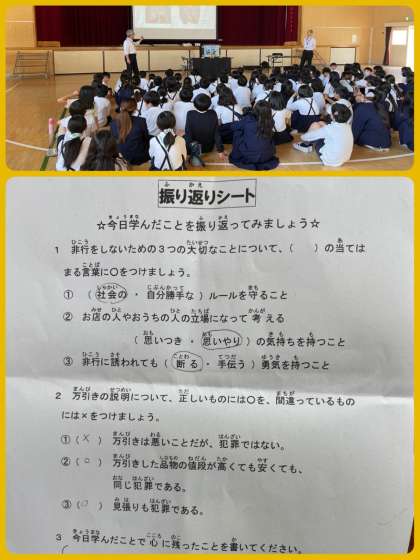 振り返りシート
☆今日学んだことを振り返ってみましょう☆
1 非行をしないための3つの大切なことについて、( )の当ては
まる言葉に○をつけましょう。
① (社会の ・ 自分勝手な)ルールを守ること
② お店の人やおうちの人の立場になって考える
(思いつき ・ 思いやり)の気持ちを持つこと
③ 非行に誘われても(断る ・ 手伝う)勇気を持つこと
2 万引きの説明について、正しいものには○を、間違っているもの
には×をつけましょう。
①(×) 万引きは悪いことだが、犯罪ではない。
②(○) 万引きした品物の値段が高くても安くても、
同じ犯罪である。
③(○) 見張りも犯罪である。
3 今日学んだことで心に残ったことを書いてください。
(